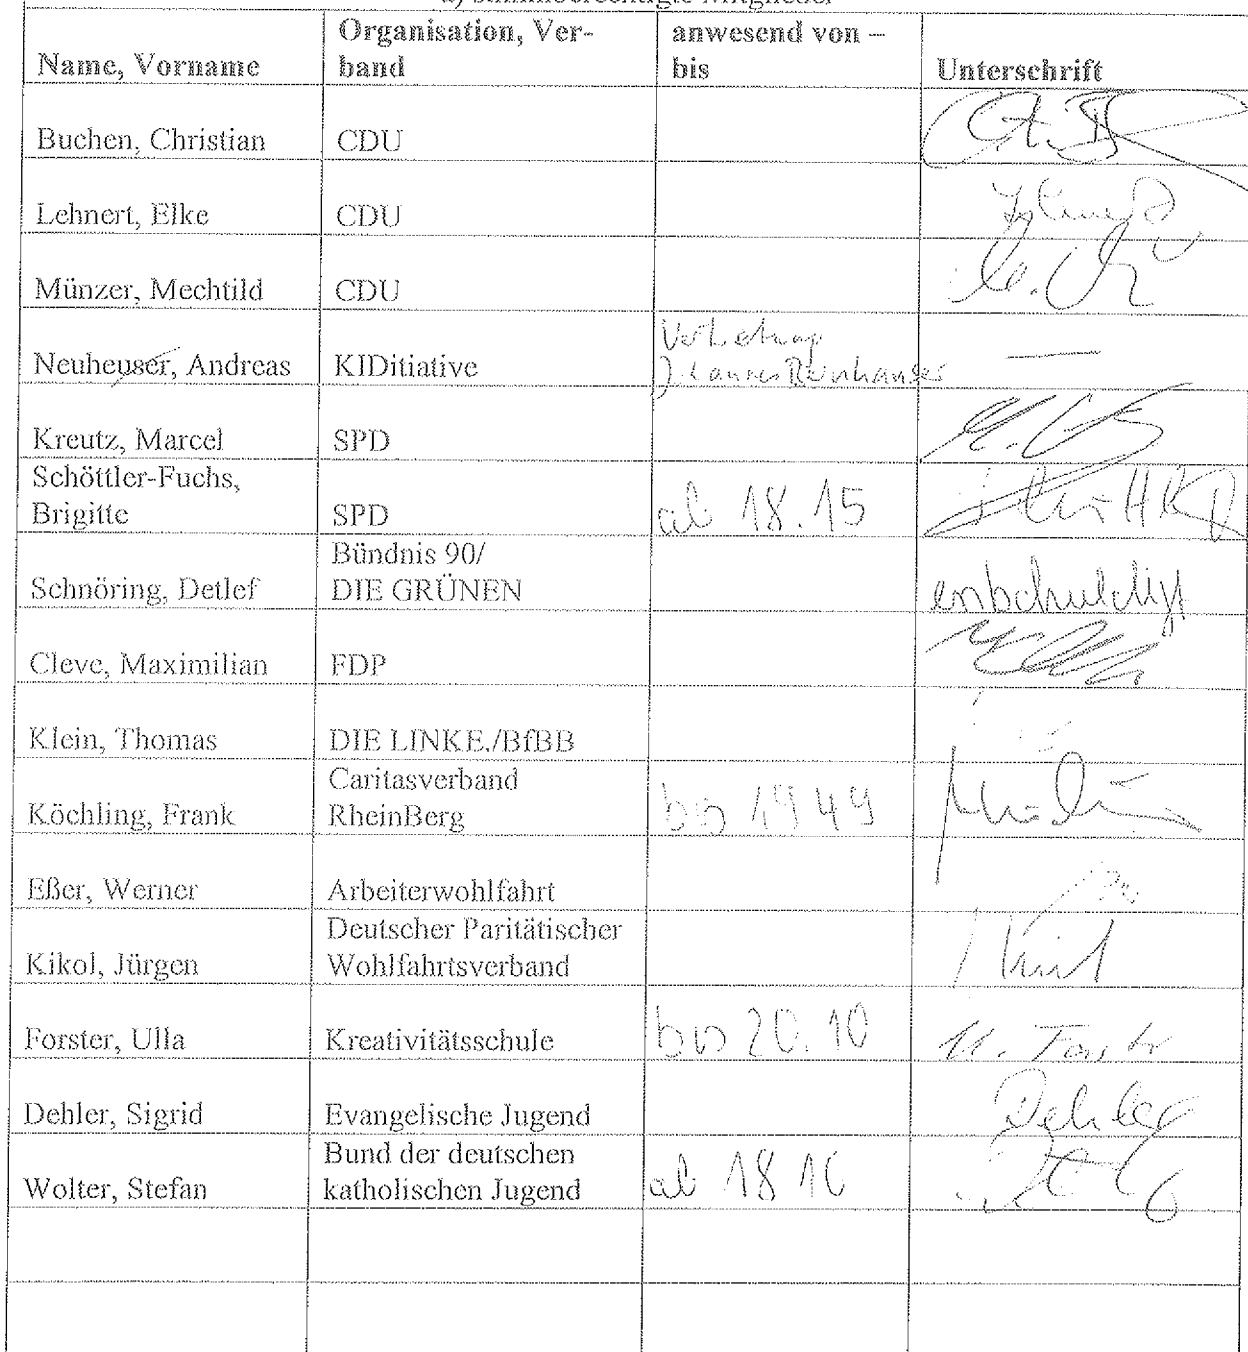 a) stimmberechtigte Mitglieder
Name, Vorname
Organisation, Ver-
band
anwesend von –
bis
Unterschrift
Buchen, Christian
CDU
Lehnert, Elke
CDU
Münzer, Mechtild
CDU
Neuheuser, Andreas
KIDitiative
Vertretung
Kreutz, Marcel
SPD
Schöttler-Fuchs,
Brigitte
SPD
ab 18.15
Schnöring, Detlef
Bündnis 90/
DIE GRÜNEN
entschuldigt
Cleve, Maximilian
FDP
Klein, Thomas
DIE LINKE./BfBB
Köchling, Frank
Caritasverband
RheinBerg
bis 19 49
Eßer, Werner
Arbeiterwohlfahrt
Kikol, Jürgen
Deutscher Paritätischer
Wohlfahrtsverband
Forster, Ulla
Kreativitätsschule
bis 20.10
U. Forster
Dehler, Sigrid
Evangelische Jugend
Dehler
Wolter, Stefan
Bund der deutschen
katholischen Jugend
ab 18 16